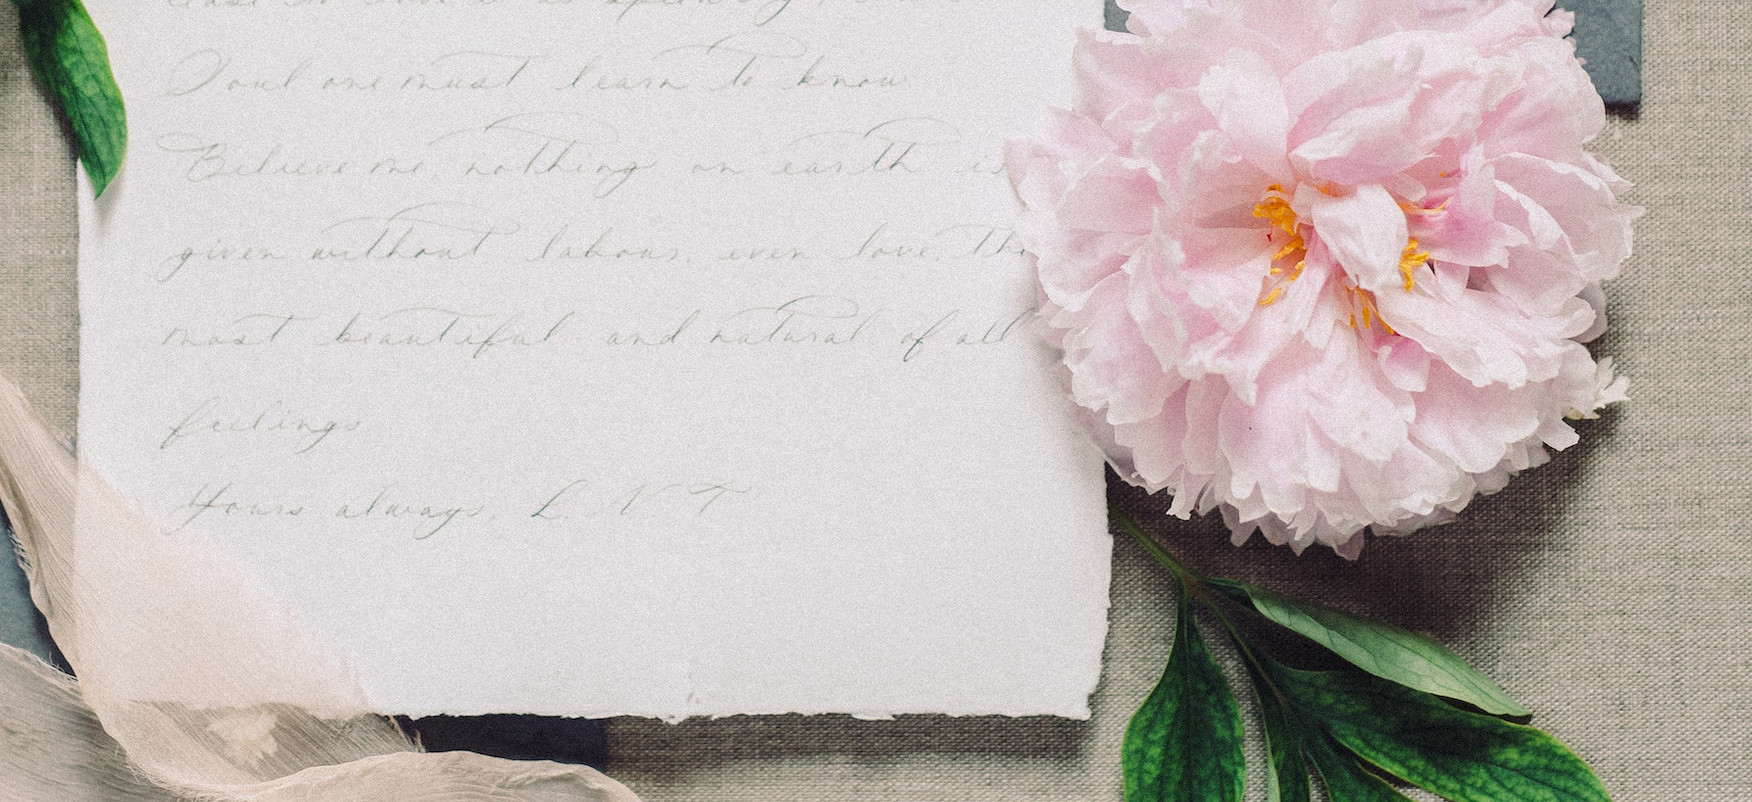 Soul one must learn to know
Believe me, nothing on earth is
given without labour, even love, the
most beautiful and natural of all
feelings
Yours always, L. N T